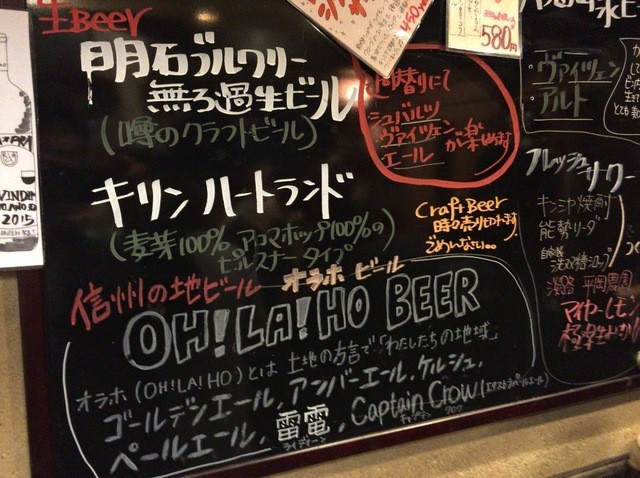 生Beer
明石ブルワリー
無ろ過生ビール
(噂のクラフトビール)
週替りにて
シュバルツ
ヴァイツェン
エール
が楽しめます
キリン ハートランド
(麦芽100%、アロマホップ100%の
ピルスナータイプ)
Craft Beer
時々売り切れます
ごめんなさい…
信州の地ビール オラホ ビール
OH!LA!HO BEER
オラホ(OH!LA!HO)とは土地の方言で「わたしたちの地域」
ゴールデンエール、アンバーエール、ケルシュ、
ペールエール、雷電、Captain Crow(エクストラペールエール)
ライデーン
キャプテン クロウ
450
580円
ヴァイツェン
アルト
フレッシュサワー
キンミヤ焼酎
能勢ソーダ
自家製
淡路 平岡農園
マイヤーレモン
VINDIM
2015